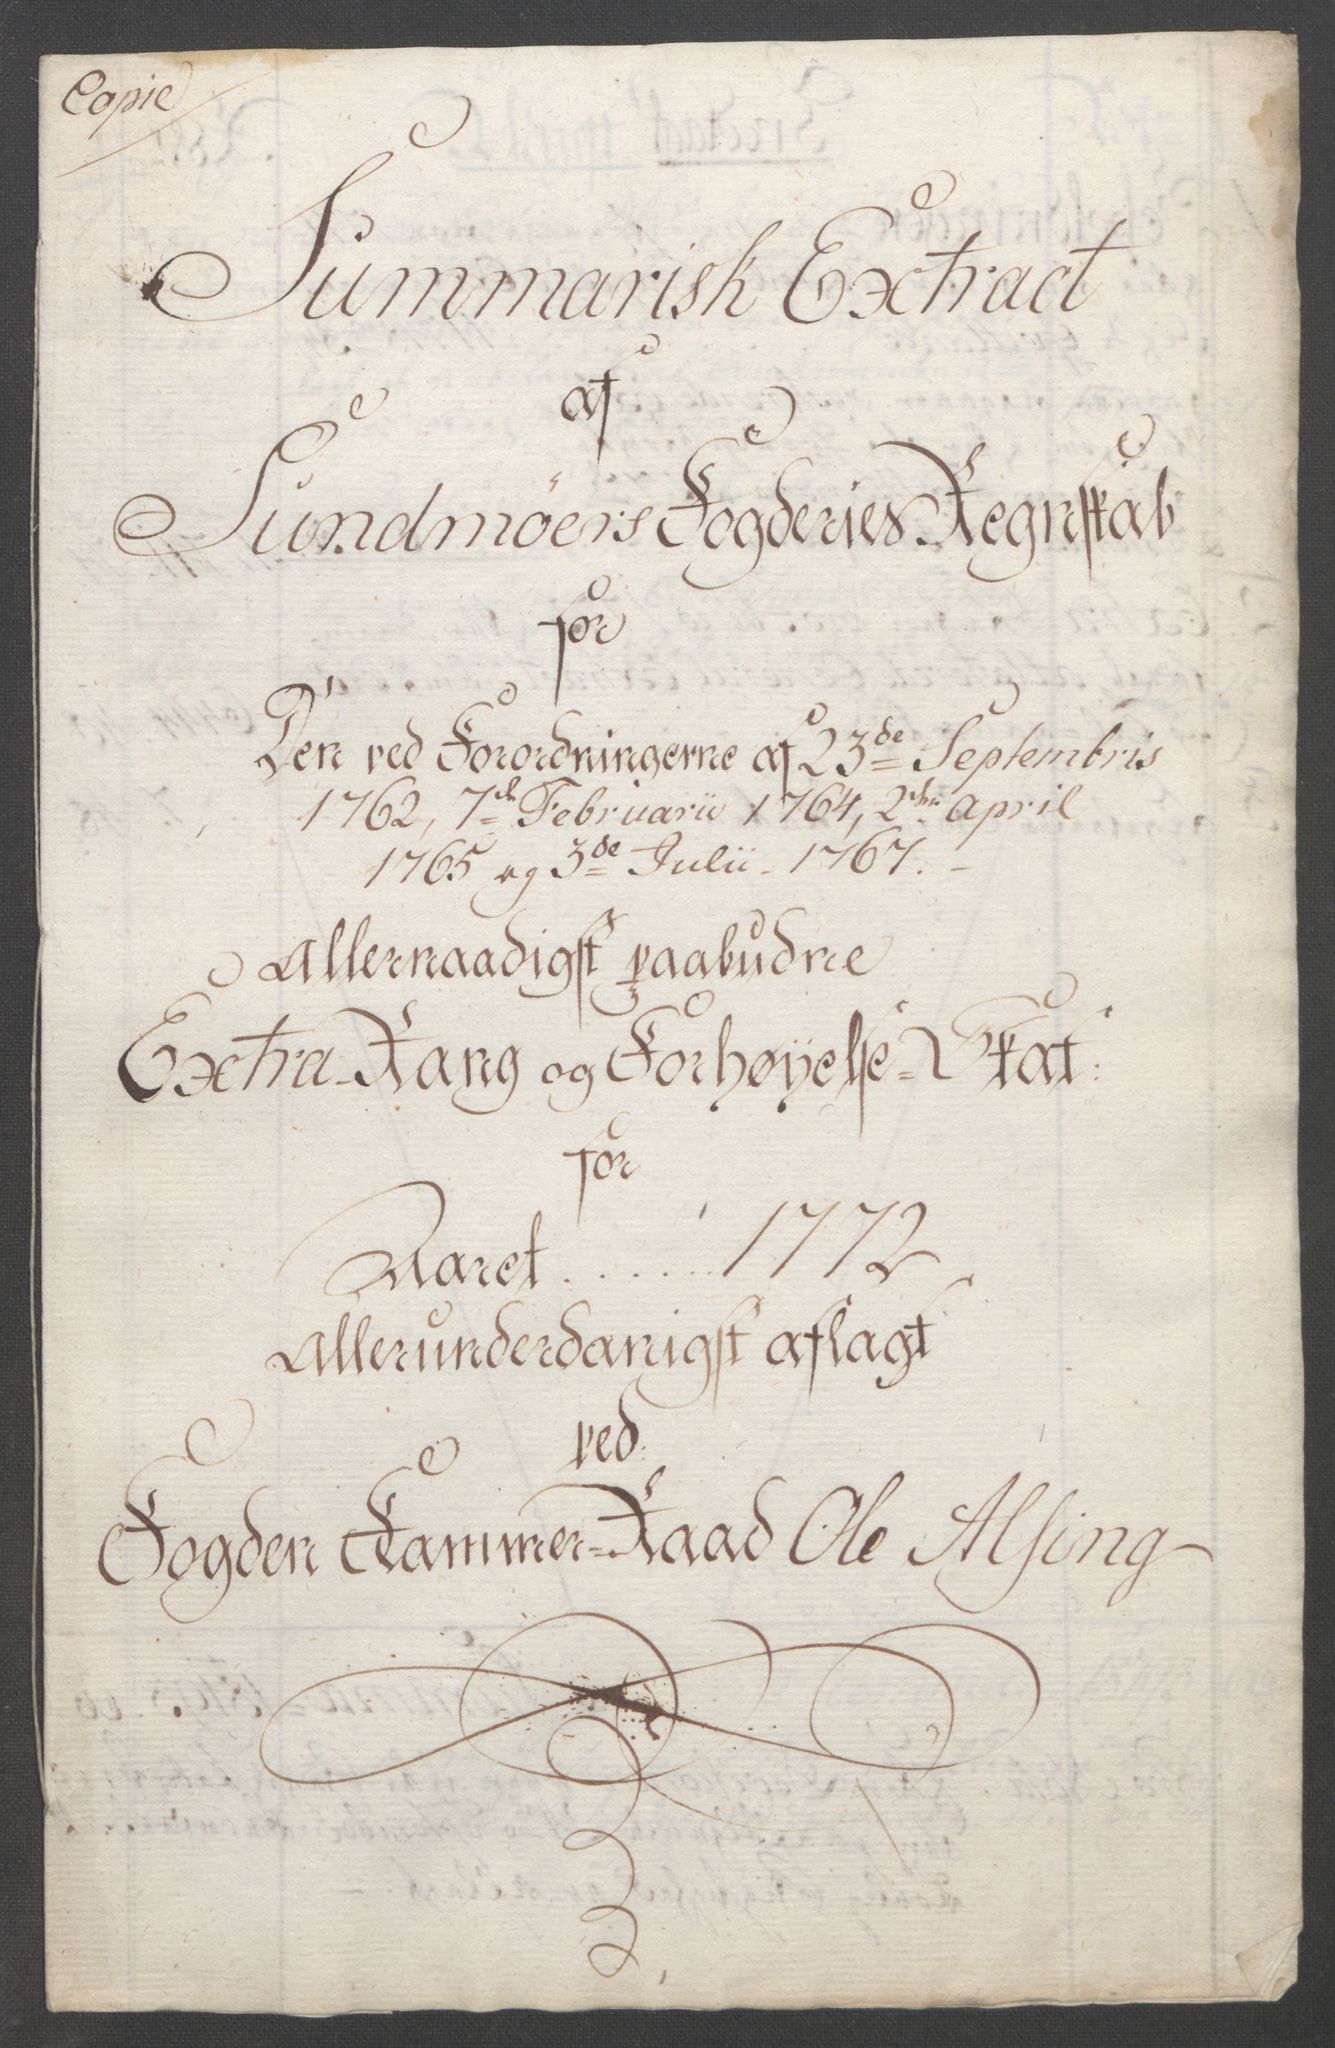 Copie
Summarisk Extract
af
Sundmöers Fogderies Regnskab
for
Den ved Forordningerne af 23de Septembris
1762, 7de Februarii 1764, 2den April
1765 og 3de Julii 1767.
Allernaadigst paabudne
Extra- Rang og Forhøyelse-Skat:
for
Aaret ...... 1772
Allerunderdanigst aflagt
ved
Fogden Kammer-Raad Ole Alsing